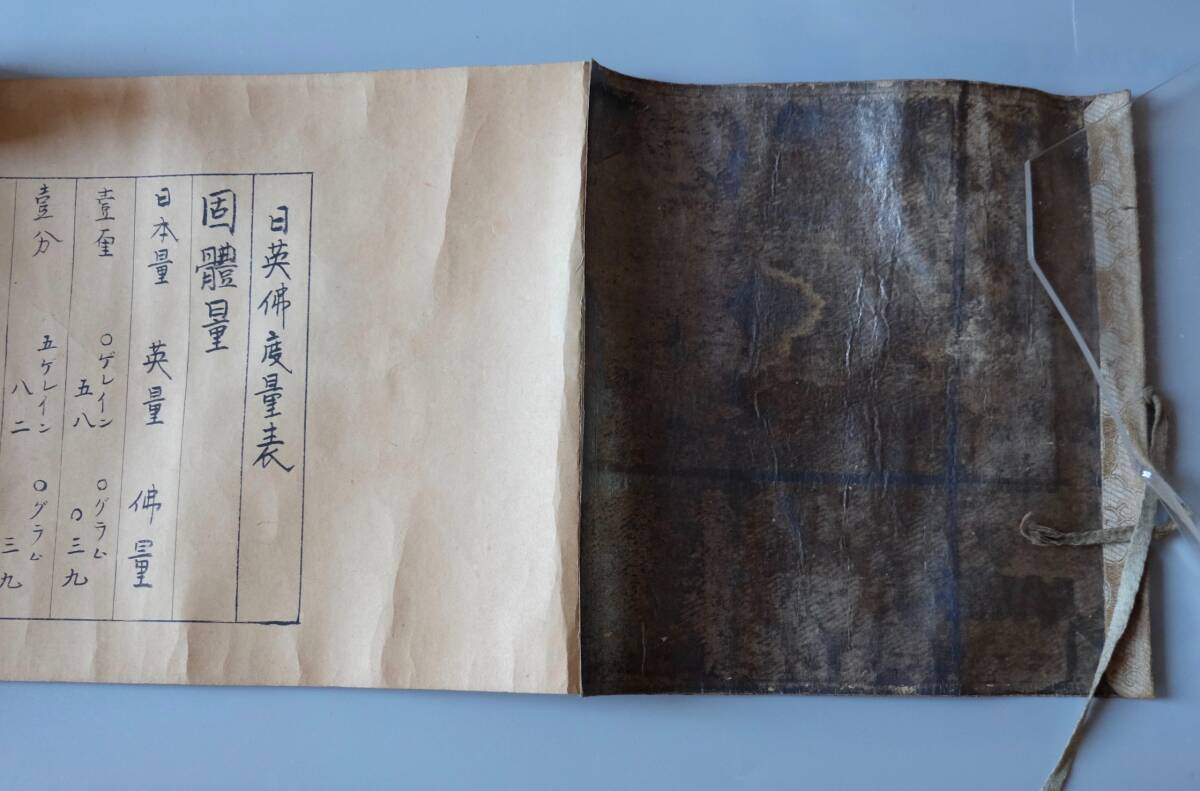 日英佛度量表
固體量
日本量 英量 佛量
壹厘 〇ゲレイン五八 〇グラム〇三九
壹分 五ゲレイン八二 〇グラム三九